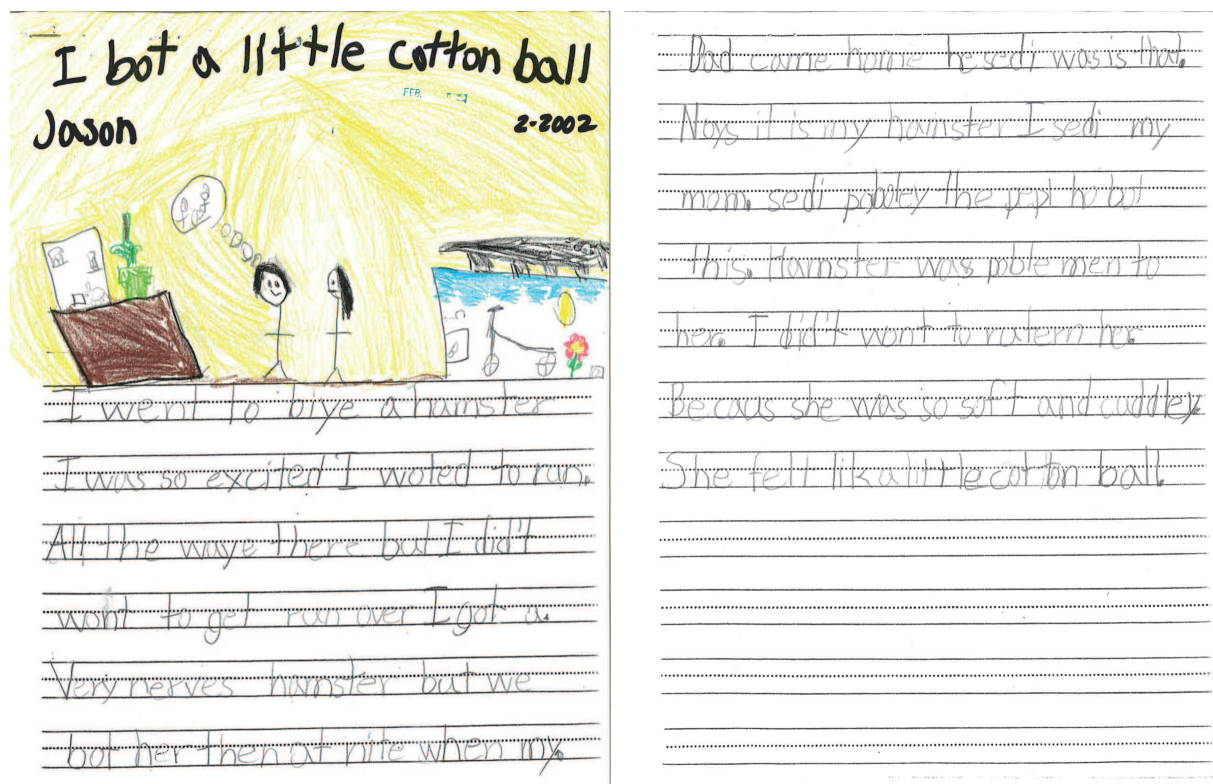 I bot a little cotton ball
FEB.
Jason
2-2002
I went to biye a hamster
I was so excited I woted to run.
All the waye there but I did't
wont to get run over I got a.
Very nerves hamster but we
bot her then at nite when my.
Dad came home he sedi was is that.
Noys it is my hamster I sedi my
mom. sedi poboley the pepl ho bot
this. Hamster was poble men to
her. I did't wont to rutern her.
Becaus she was so soft and cuddley.
She felt lik a little cotton ball.